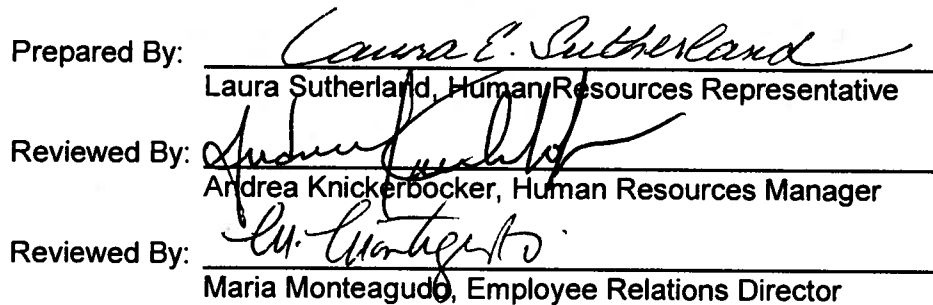 Prepared By: Laura E. Sutherland
Laura Sutherland, Human Resources Representative
Reviewed By: Andrea
Andrea Knickerbocker, Human Resources Manager
Reviewed By: M. Monteagudo
Maria Monteagudo, Employee Relations Director